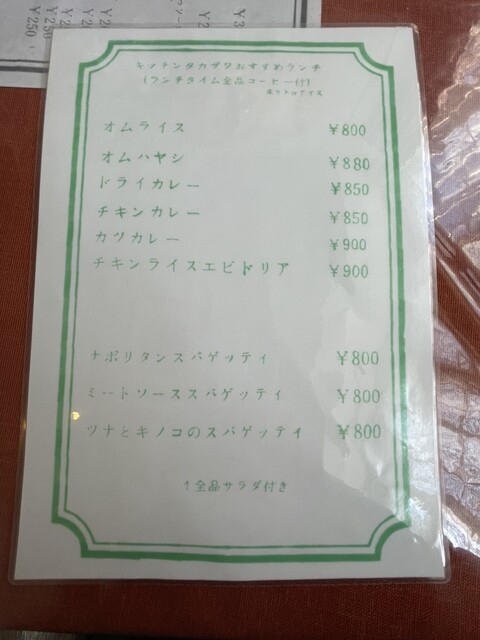 キッチンタカザワおすすめランチ
(ランチタイム全品コーヒー付)
オムライス ￥800
オムハヤシ ￥880
ドライカレー ￥850
チキンカレー ￥850
カツカレー ￥900
チキンライスエビドリア ￥900
ナポリタンスパゲッティ ￥800
ミートソーススパゲッティ ￥800
ツナとキノコのスパゲッティ ￥800
↑全品サラダ付き
￥250